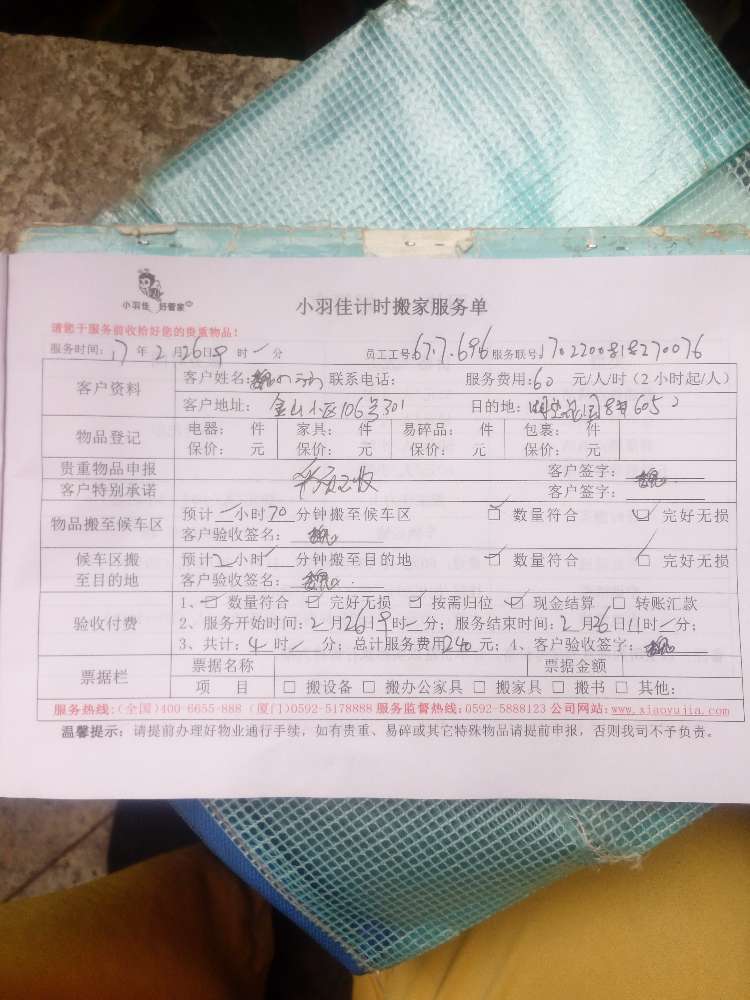 小羽佳 好管家
小羽佳计时搬家服务单
请您于服务前收拾好您的贵重物品!
服务时间: 17 年 2 月 26 日 早 时 一 分 员工工号: 67.7.696 服务联号: 1702200818270076
客户资料 客户姓名: 联系电话: 服务费用: 60 元/人/时 (2 小时起/人)
客户地址: 金山小区106号301 目的地: 605
物品登记 电器: 件 家具: 件 易碎品: 件 包裹: 件
保价: 元 保价: 元 保价: 元 保价: 元
贵重物品申报 客户签字:
客户特别承诺 客户签字:
物品搬至候车区 预计 一 小时 70 分钟搬至候车区 ☑ 数量符合 ☑ 完好无损
客户验收签名:
候车区搬至目的地 预计 2 小时 一 分钟搬至目的地 ☑ 数量符合 ☑ 完好无损
客户验收签名:
验收付费 1、☑ 数量符合 ☑ 完好无损 ☑ 按需归位 ☑ 现金结算 □ 转账汇款
2、服务开始时间: 2 月 26 日 早 时 一 分; 服务结束时间: 2 月 26 日 11 时 一 分;
3、共计: 4 时 一 分; 总计服务费用 240 元; 4、客户验收签字:
票据栏 票据名称 票据金额
项 目 □ 搬设备 □ 搬办公家具 □ 搬家具 □ 搬书 □ 其他:
服务热线: (全国)400-6655-888 (厦门)0592-5178888 服务监督热线: 0592-5888123 公司网站: www.xiaoyujia.com
温馨提示: 请提前办理好物业通行手续, 如有贵重、易碎或其它特殊物品请提前申报, 否则我司不予负责。